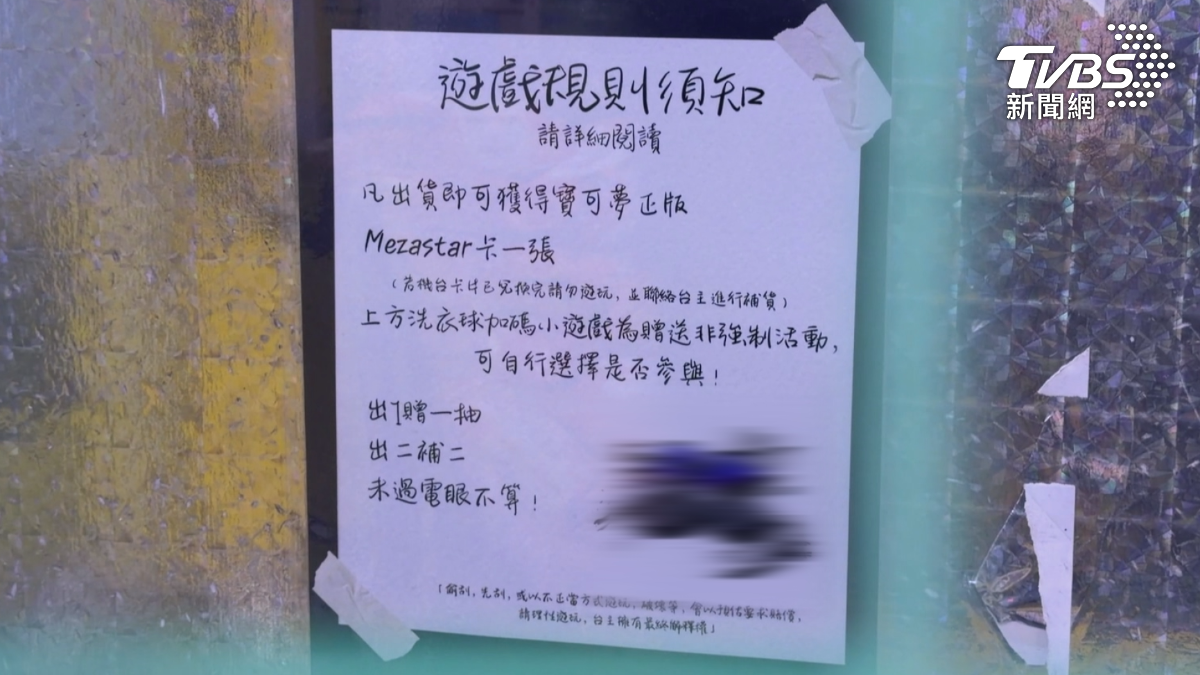 TVBS
新聞網
遊戲規則須知
請詳細閱讀
凡出貨即可獲得寶可夢正版
Mezastar卡一張
（若機台卡片已兌換完請勿遊玩，並聯絡台主進行補貨）
上方洗衣球加碼小遊戲為贈送非強制活動，
可自行選擇是否參與！
出1贈一抽
出二補二
未過電眼不算！
「偷刮，先刮，或以不正當方式遊玩，破壞等，會以預估要求賠償，
請理性遊玩，台主擁有最終解釋權」